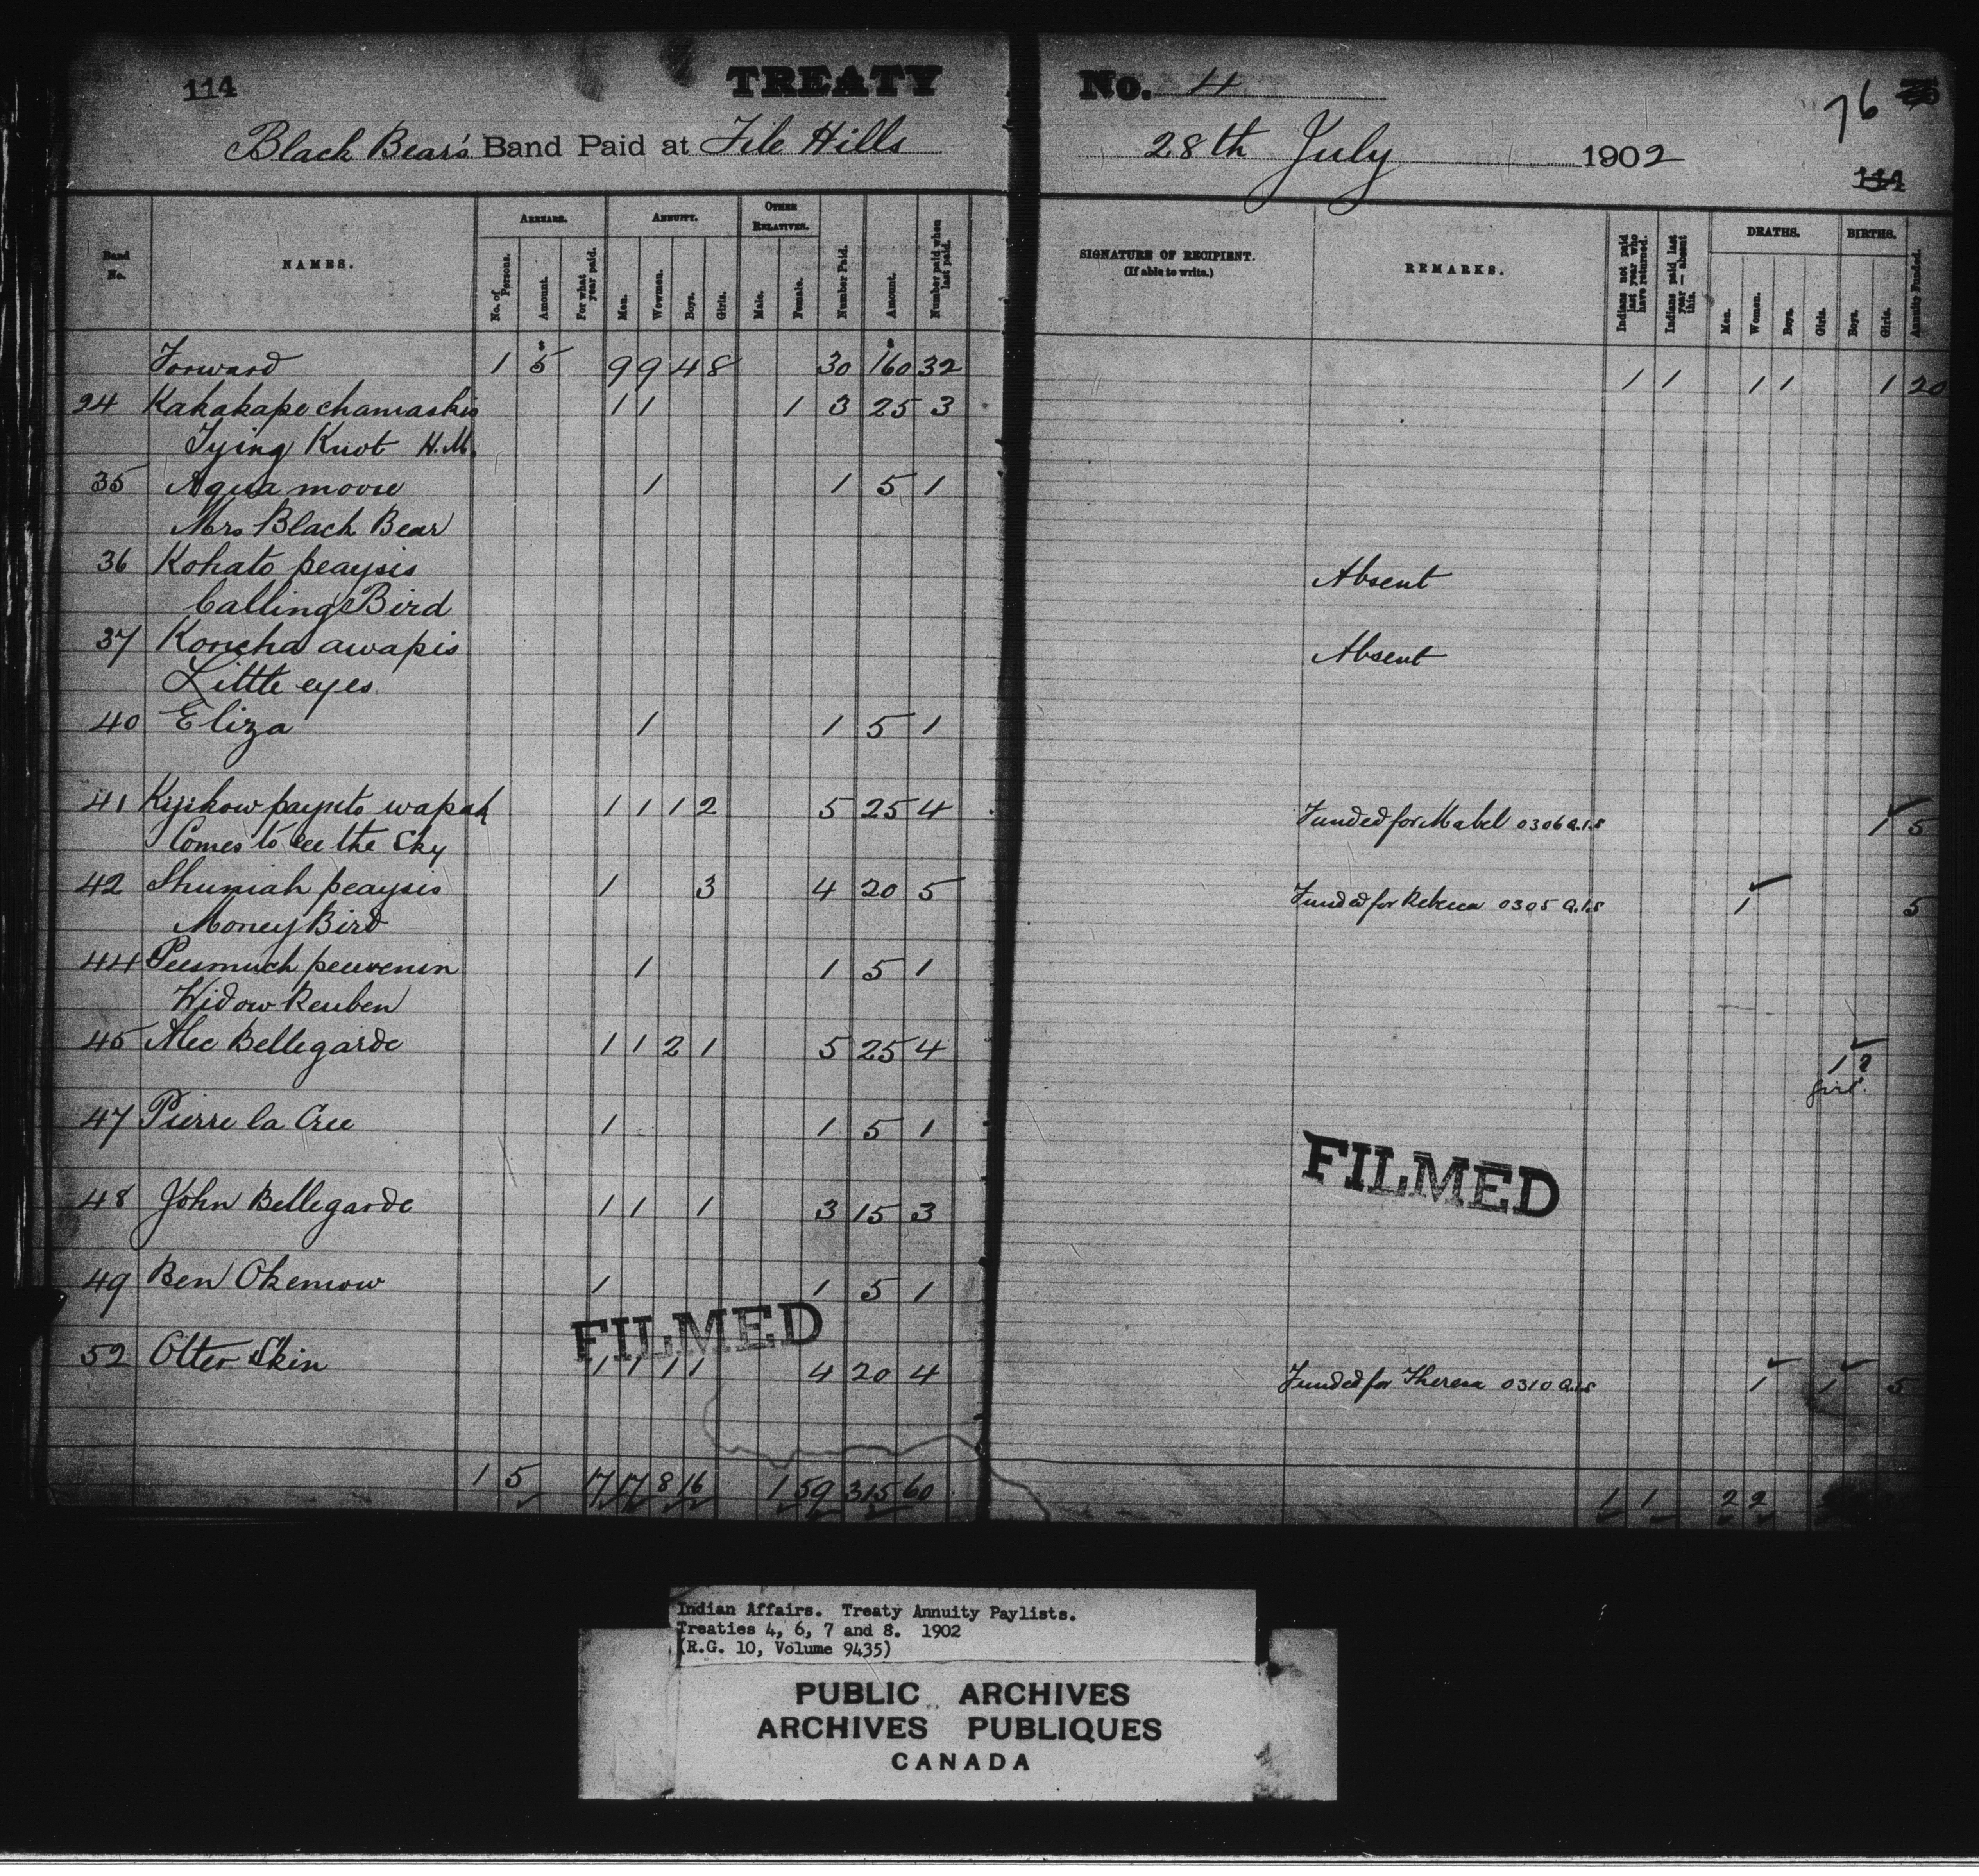 114 TREATY No. 4 76
Black Bear's Band Paid at File Hills 28th July 1902
114
Band No. NAMES. ARREARS. ANNUITY. OTHER RELATIVES. Number Paid. Amount. Number paid when last paid. SIGNATURE OF RECIPIENT. (If able to write.) REMARKS. Indians not paid last year who have returned. Indians paid last year — absent this. DEATHS. BIRTHS. Annuity Funded.
No. of Persons. Amount. For what year paid. Men. Women. Boys. Girls. Male. Female. Men. Women. Boys. Girls. Boys. Girls.
Forward 1 5 9 9 4 8 30 160 32 1 1 1 1 1 20
24 Kakakapechamaskis 1 1 1 3 25 3
Tying Knot H.M.
35 Aqua moose 1 1 5 1
Mrs Black Bear
36 Kohato peaysis Absent
Calling Bird
37 Koncha awapis Absent
Little eyes
40 Eliza 1 1 5 1
41 Kijikow payuto wapah 1 1 1 2 5 25 4 Funded for Mabel 0306 a.1.5 1 5
Comes to see the Sky
42 Shuniah peaysis 1 3 4 20 5 Funded for Rebecca 0305 a.1.5 1 5
Money Bird
44 Peesmuch peuvenin 1 1 5 1
Widow Reuben
45 Alec Bellegarde 1 1 2 1 5 25 4 1 ?
girl.
47 Pierre la Cree 1 1 5 1
FILMED
48 John Bellegarde 1 1 1 3 15 3
49 Ben Okemow 1 1 5 1
FILMED
52 Otter Skin 1 1 1 1 4 20 4 Funded for Theresa 0310 a.1.5 1 1 5
1 5 17 17 8 16 1 59 315 60 1 1 2 2
Indian Affairs. Treaty Annuity Paylists.
Treaties 4, 6, 7 and 8. 1902
(R.G. 10, Volume 9435)
PUBLIC ARCHIVES
ARCHIVES PUBLIQUES
CANADA